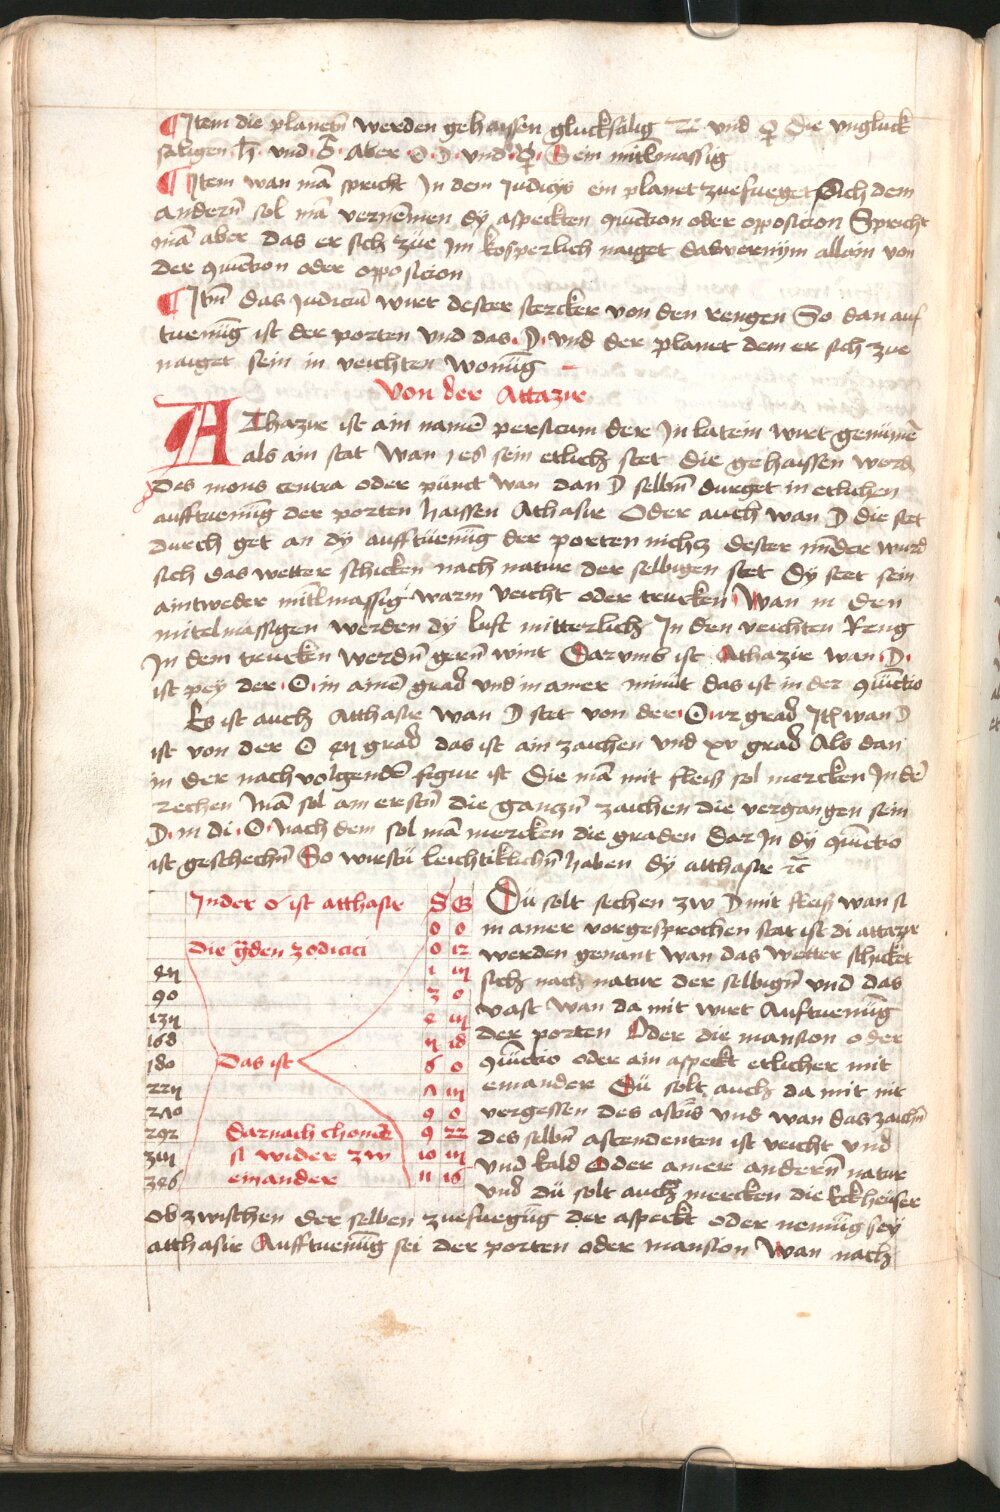 ¶ Item die planetn̄ werden gehaissen glucksälig ♃ und ♀ Die vngluck
säligen ♄ · vnd · ♂ · Aber · ☉ · ☽ · vnd · ☿ · Sein mitlmassig
¶ Item wan mā spricht In dem Iudicio ein planet zuefueget sich dem
andern̄ sol mā vernemen dy aspeckten 9iūction oder opposicion Spricht
mā aber das er sich züe im naiget allain von
der 9iūction oder opposicion
¶ Itm̄ das Iudiciū wirt dester stercker von den rengen So dan auf
tuenūg ist der porten vnd das · ☽ · vnd der planet dem er sich zue
naiget sein in veichten wonūg
Von der Attazir
AThazir ist ain namē persicum der In latein wirt genūmē
als ain stat Wan es sein etlich stet die gehaissen werd
Des mons centra oder pünct wan dan ☽ selbm̄ durget in etlichen
aufftuenūg der porten haissen Athasir Oder auch wan ☽ die stet
durch get an dy aufftüenūg der porten nichcz dester minder wurd
sich das wetter schicken nach natur der selbigen stet Dy stet sein
aintweder mitlmassig warm veicht oder trucken Wan in den
mitelmassigen werden dy luft mitterlich In den veichten Reng
In dem trucken werdn̄ gern̄ wint Darumb ist Athazir wan · ☽ ·
ist pey der · ☉ · in ainē grad vnd in ainer minut das ist in der 9iūctio
Es ist auch Atthasir wan ☽ stet von der · ☉ · 12 grad Itē wan ☽
ist von der ☉ 45 grad das ist ain zaichen vnd xv grad Als dan
in der nachvolgendē figur ist Die mā mit fleiß sol mercken In dē
rechen Mā sol am erstn̄ die ganczn̄ zaichen die vergangen sein
☽ · in di · ☉ · Nach dem sol mā mercken die graden Dar In dy 9iūctio
ist geschechn̄ So wirstü leichtiklichn̄ haben dy atthasir ꝛc̄
In der ☉ ist atthasir S G
0 0
Die g̈den zodiaci 0 12
45 1 15
90 3 0
135 4 15
168 5 18
180 Das ist 6 0
225 7 15
270 9 0
292 Darnach chomēt 9 22
315 si wider zw 10 15
346 einander 11 16
Dü solt sechen zw ☽ mit fleiß wan si
in ainer vorgesprochen stat ist di attazir
werden genant wan das wetter schicket
sich nach natur der selbign̄ vnd das
vast wan da mit wirt Auftuenūg
der porten Oder die mansion oder
9iūctio oder ain aspeckt etlicher mit
einander Dü solt auch da mit nit
vergessen des asc̄ns vnd wan das zaichn̄
des selbn̄ ascendenten ist veicht vnd
vnd kald Oder ainer andern̄ natur
vnd dü solt auch mercken die Eckheüser
ob zwischen der selben zuefuegūg der aspeckt oder nemūg sey
atthasir Aufftuenūg sei der porten oder mansion Wan nach